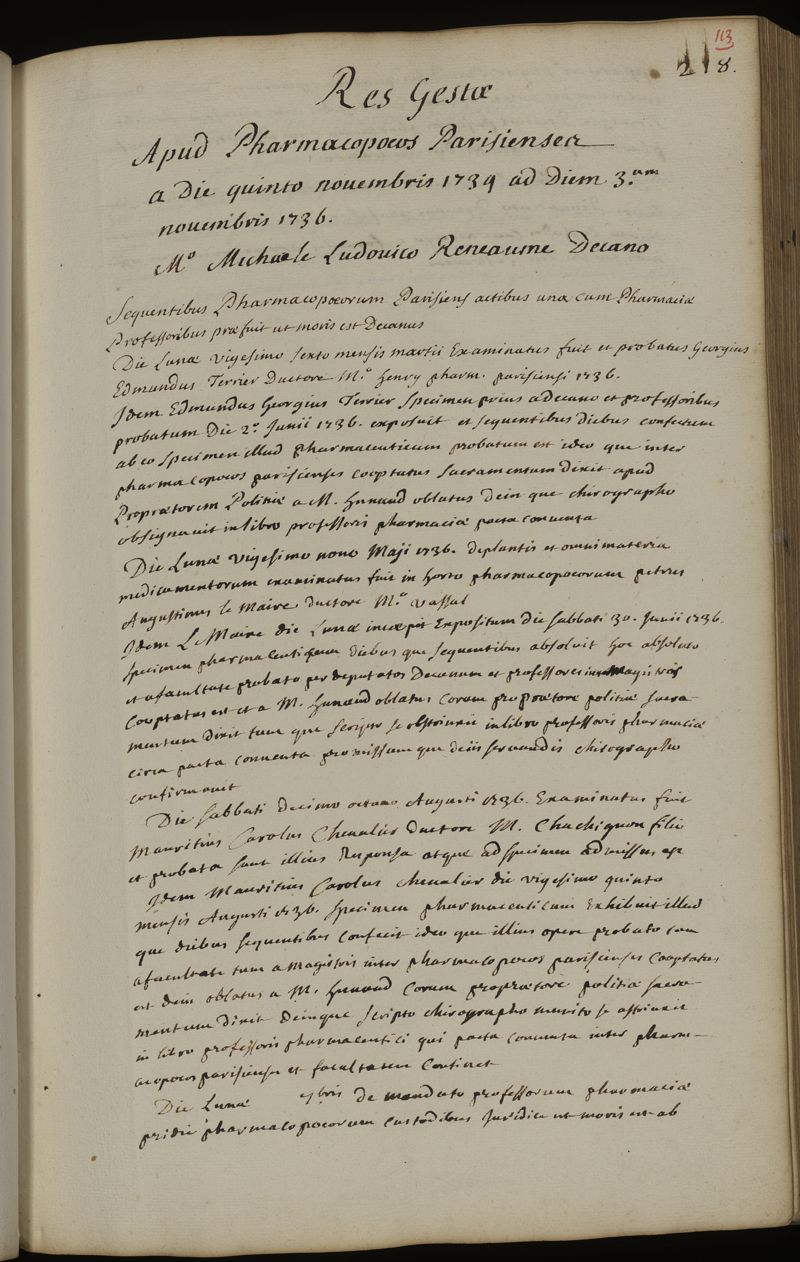 113
218.
Res Gestæ
Apud Pharmacopoeos Parisienses
a Die quinto novembris 1734 ad Diem 3.um
novembris 1736.
M.o Michaele Ludovico Reneaume Decano
Sequentibus Pharmacopoeorum Parisiens actibus una cum Pharmaciæ
Professoribus præfuit ut moris est Decanus
Die Lunæ vigesimo sexto mensis martii Examinatus fuit et probatus Georgius
Edmundus Terrier Ductore M.o henry pharm. parisiensi 1736.
Idem Edmundus Georgius Terrier Specimen prius a decano et professoribus
probatum Die 2.a Junii 1736. exposuit et sequentibus diebus confectum
ab eo specimen illud pharmaceuticum probatum est ideo que inter
pharmacopoeos parisienses cooptatus sacramentum dixit apud
Propraetorem Politiæ a M. hunaud oblatus dein que chirographo
obsignavit in libro professoris pharmaciæ pacta conventa
Die Lunæ vigesimo nono Maji 1736. de plantis et omni materia
medicamentorum examinatus fuit in horto pharmacopoeorum petrus
Augustinus le Maire ductore M.o vassal
Idem Le Maire die Lunæ incœpit Expositum die sabbati 30. Junii 1736.
specimen pharmaceuticum diebus que sequentibus absolvit hoc absoluto
et a facultate probato per deputatos Decanum et professores inter Magistros
Cooptatus est et a M. hunaud oblatus coram propraetore politiæ sacra-
mentum dixit tum que scripto se obstrinxit in libro professoris pharmaciæ
circa pacta conventa promissum que de iis servandis chirographo
confirmavit
Die sabbati decimo octavo Augusti 1736. Examinatus fuit
Mauritius Carolus Chevalier ductore M. Chachignon filio
et probata sunt illius Responsa atque ad specimen admissus est
Idem Mauritius Carolus chevalier die vigesimo quinto
mensis Augusti 1736. specimen pharmaceuticum Exhibuit illud
que diebus sequentibus confecit ideo que illius opere probato tum
a facultate tum a Magistris inter pharmacopoeos parisienses Cooptatus
est dein oblatus a M. hunaud Coram propraetore politiæ sacra-
mentum dixit deinque scripto chirographo munito se astrinxit
in libro professoris pharmaceutici qui pacta conventa inter pharm-
acopoeos parisienses et facultatem Continet
Die Lunæ 7bris de mandato professorum pharmaciæ
pridie pharmacopoeorum custodibus Juridice ut moris est ab